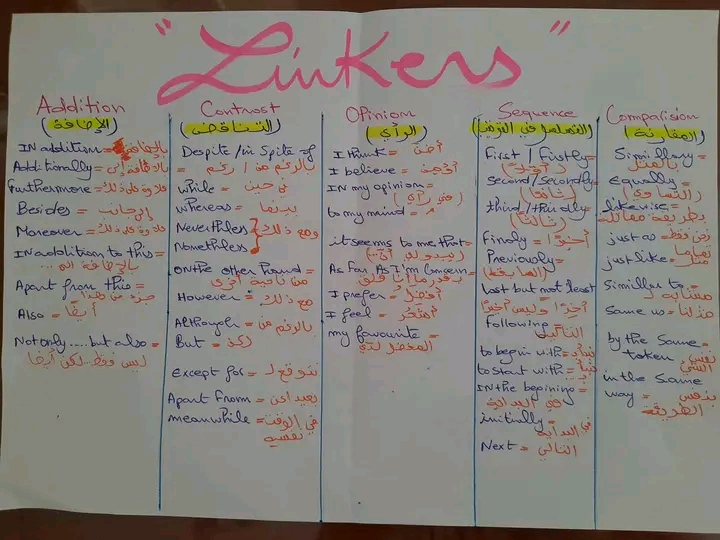 "Linkers"
Addition
(الإضافة)
IN addition = بالإضافة
Additionally = بالإضافة إلى
Furthermore = علاوة على ذلك
Besides = إلى جانب
Moreover = علاوة على ذلك
IN addition to this =
بالإضافة إلى
Apart from this =
جزء من هذا
Also = أيضا
Not only ..... but also =
ليس فقط.. لكن أيضا
Controst
(التناقض)
Despite / in Spite of
بالرغم من / رغم =
while = في حين
whereas = بينما
Nevertheless
Nonetheless } مع ذلك
ON the other hand =
من ناحية أخرى
However = مع ذلك
Although = بالرغم من
But = لكن
Except for =
Apart From =
meanwhile = في الوقت
نفسه
Opiniom
(الرأي)
I think = أظن
I believe = أؤمن
IN my opinion =
(في رأي)
to my mind = "
it seems to me that =
(يبدو لي أن...)
As far As I'm concern =
بقدر ما أنا قلق
I prefer = أفضل
I feel = أشعر
my favourite =
المفضل لدي
Sequence
First / Firstly =
(أولا)
second / Secondly =
(ثانيا)
third / thirdly =
(ثالثا)
Finaly = أخيرا
Previously =
(السابقة)
Last but not least
أخيرا وليس آخرا
Following
التالي
to begin with = نبدأ
to start with = نبدأ
IN the begining =
في البداية
initially = في البداية
Next = التالي
Comparision
(المقارنة)
Simillary =
بالمثل
Equally =
(التساوي)
likewise =
بطريقة مماثلة
just as =
just like = تماما مثل
Similler to =
مشابه
Same us = مثلنا
by the Same =
token نفس الشي
in the Same
way = بنفس
الطريقة